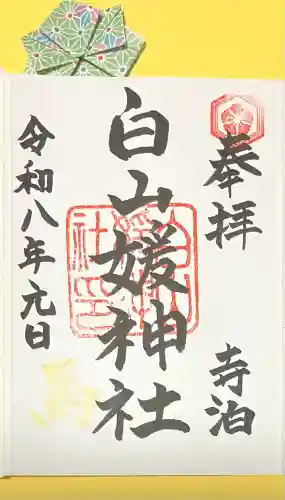 奉拝
寺泊
白山媛神社
令和八年元日